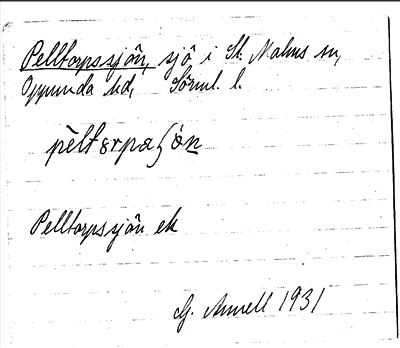 Pelltorpssjön, sjö i St. Malms sn,
Oppunda hd, Sörml. l.
pèltɷrpaʃö́n
Pelltorpssjön ek
G. Annell 1931